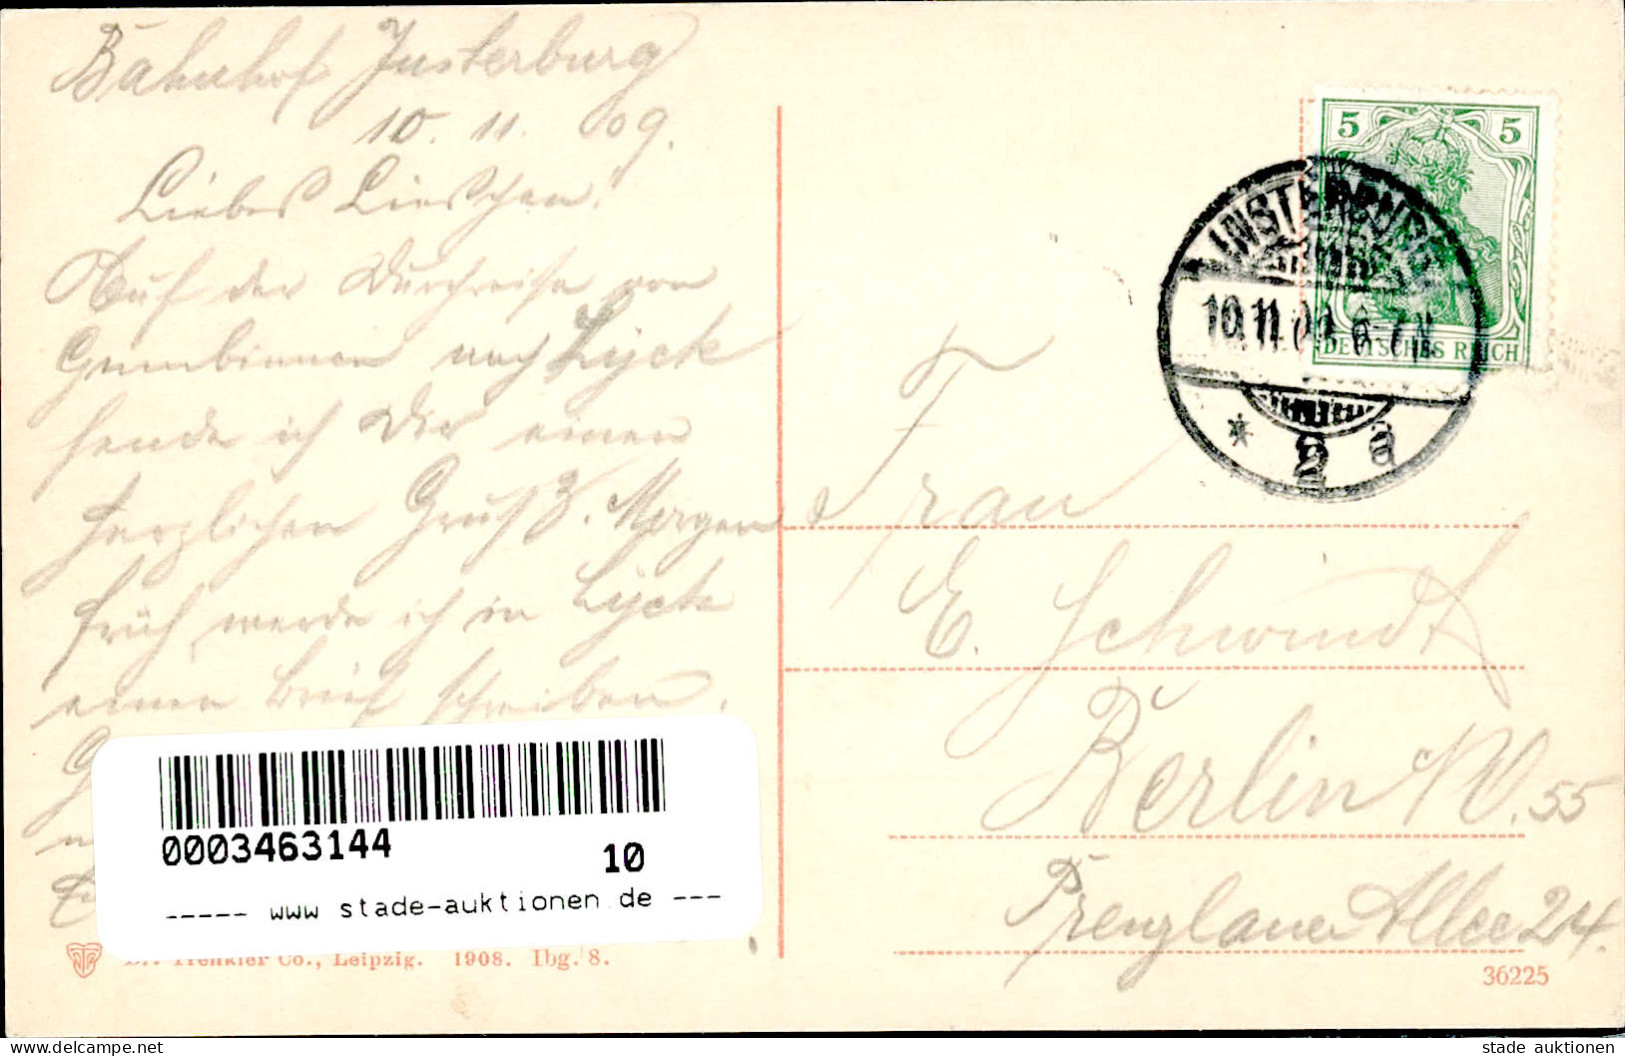 Bahnhof Insterburg
10. 11. 09.
Liebes Lieschen!
Auf der Durchreise von
Gumbinnen nach Lyck
sende ich Dir einen
herzlichen Gruß. Morgen
früh werde ich in Lyck
einen Brief schreiben.
0003463144
10
----- www stade-auktionen.de ---
Trenkler Co., Leipzig. 1908. Ibg. 8.
5 5
DEUTSCHES REICH
INSTERBURG
10.11.09. 6-7 N
* 2 a
Frau
E. Schwindt
Berlin NO. 55
Prenzlauer Allee 24.
36225
www.delcampe.net
stade auktionen